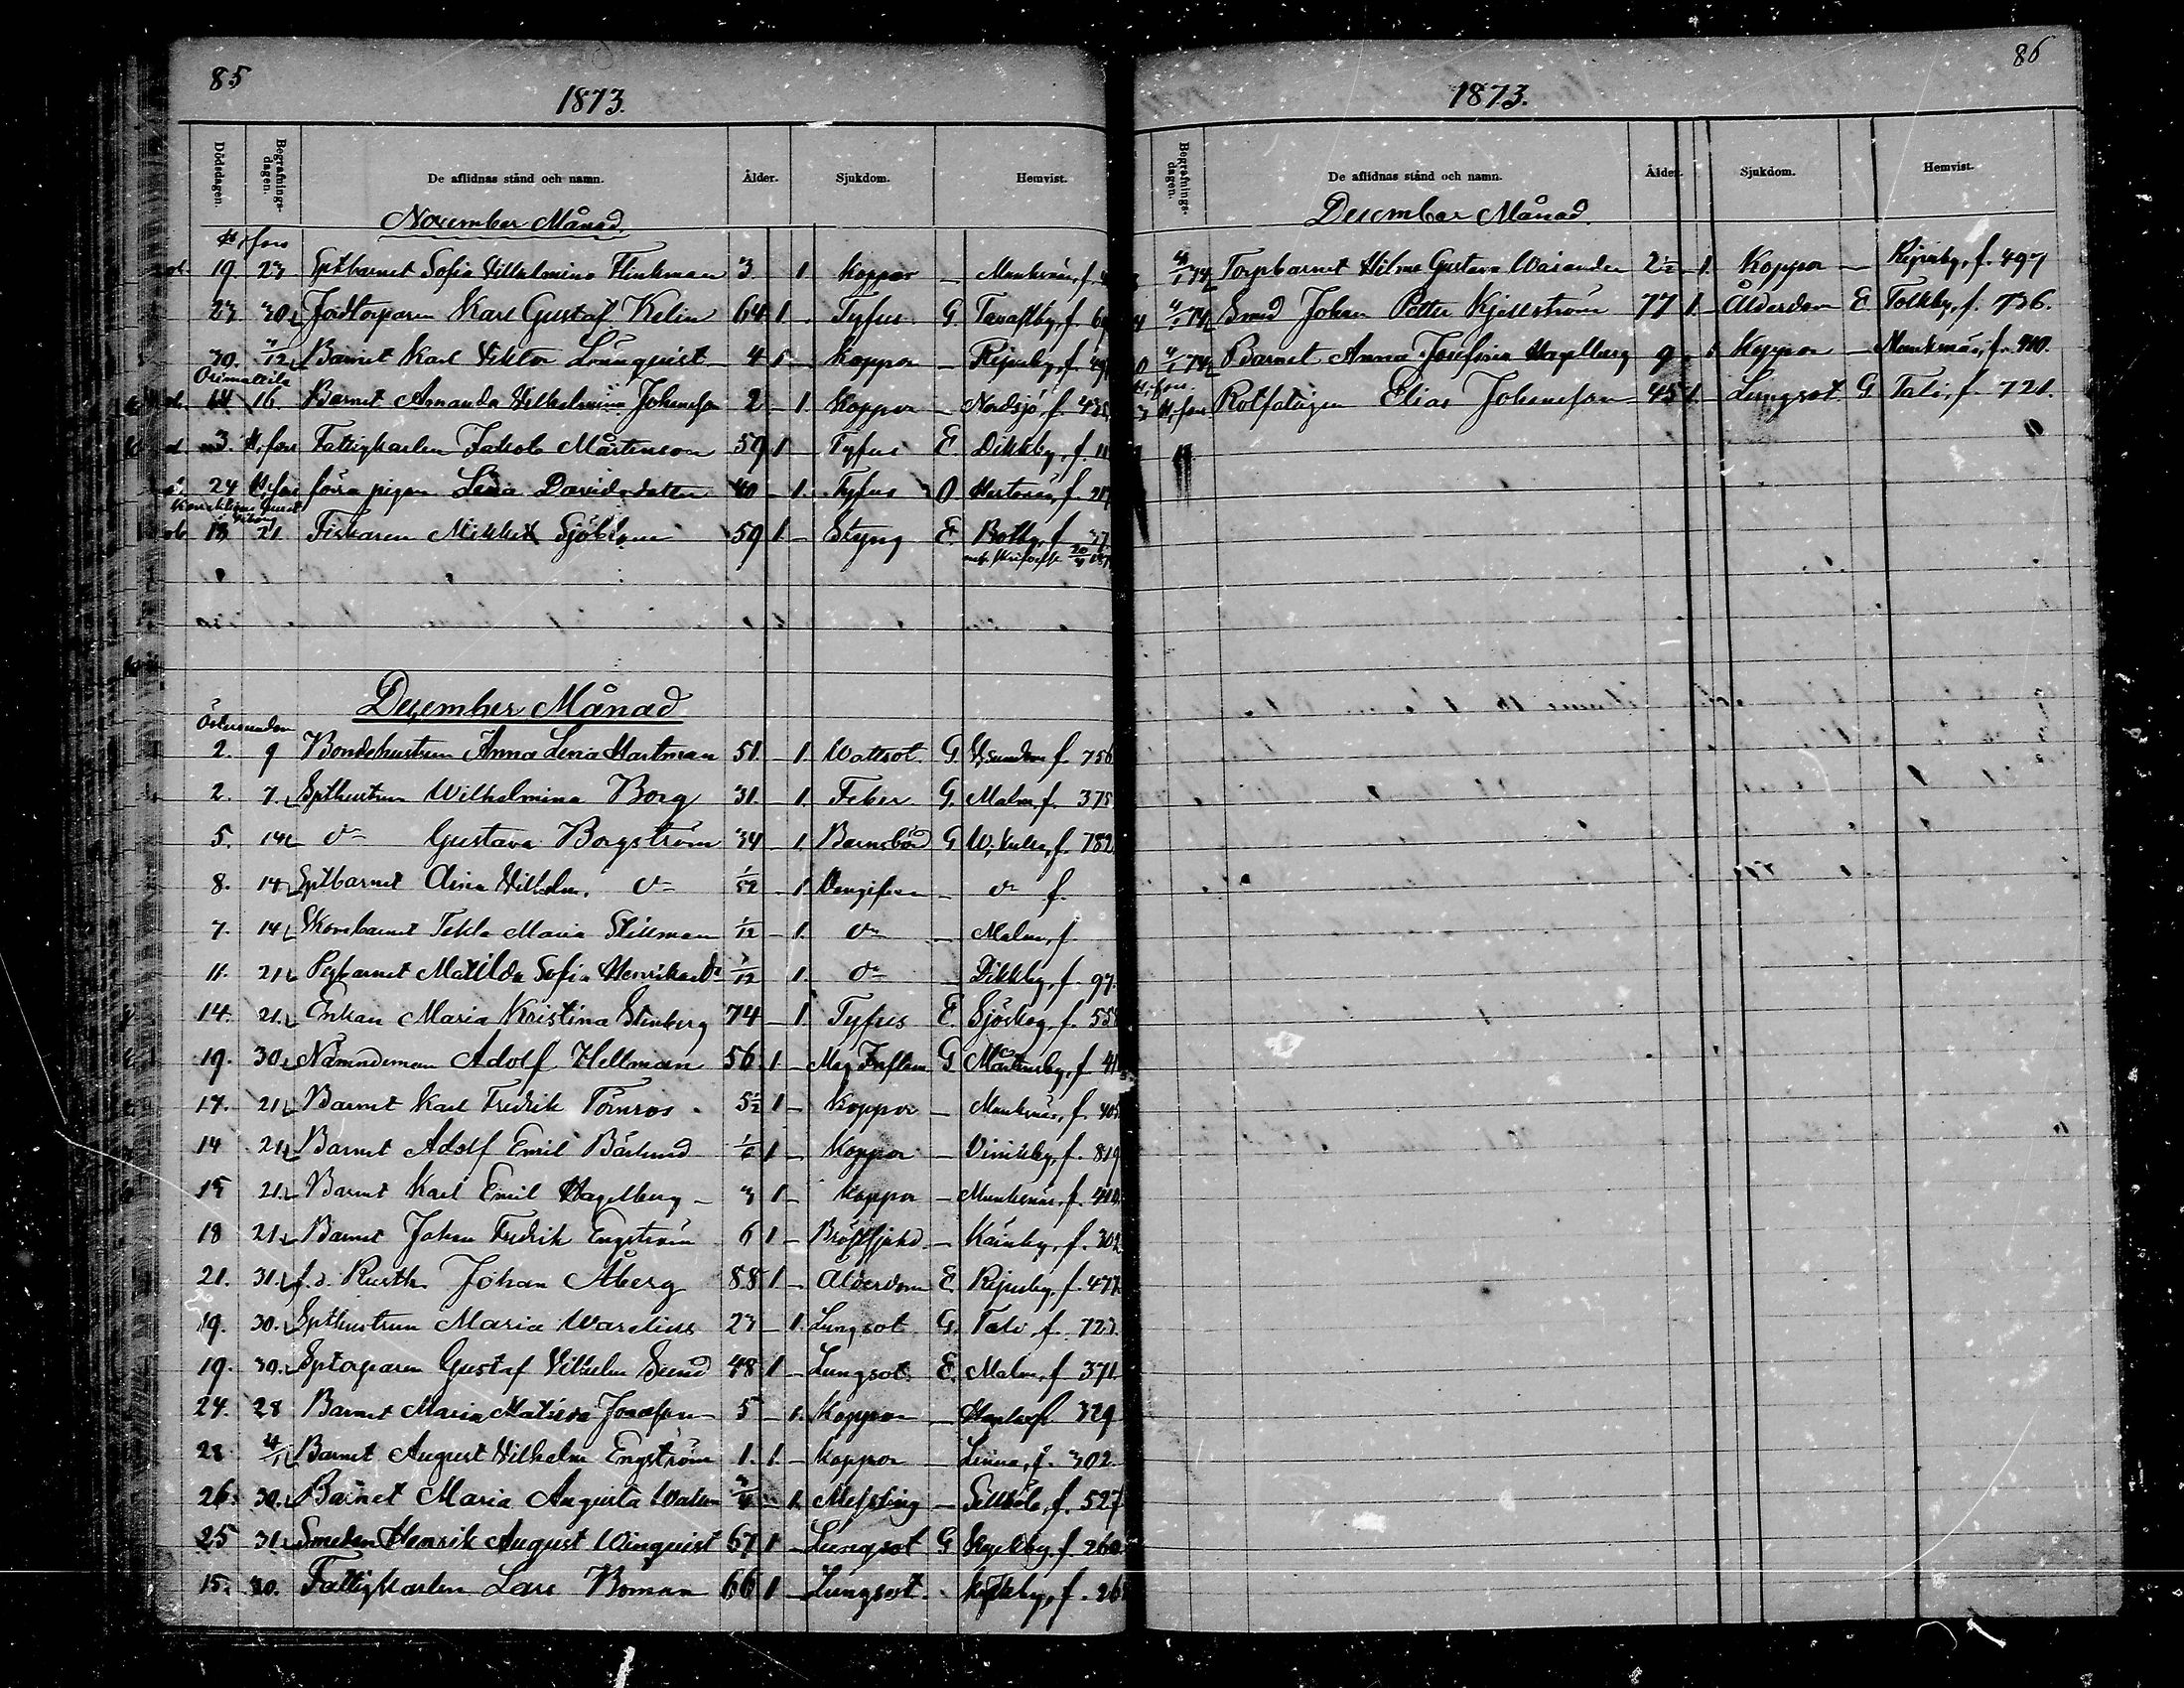 85
1873.
Dödsdagen. Begrafnings-dagen. De aflidnas stånd och namn. Ålder. Sjukdom. Hemvist.
November Månad.
H,fors
19. 23. Sptbarnet Sofia Vilhelmina Flinkman 3 1. Koppor — Munksnäs, f.
23. 30. Jordtorparen Karl Gustaf Kelin 64 1. Tyfus. G. Tavastby, f.
30. 7/12 Barnet Karl Viktor Lönnqvist 4 1 — Koppor — Rejpuby, f.
Orimattila
14 16. Barnet Amanda Vilhelmina Johansson 2 — 1. Koppor — Nordsjö, f. 435
3. H,fors Fattigkarlen Jakob Mårtenson 59 1 — Tyfus E. Dikkby, f.
24 H,fors förra pigan Lena Davidsdotter 40 — 1. Tyfus O Hertonäs, f.
18 21. Fiskaren Mikkel Sjöblom 59 1 — Styng E. Botby, f. 37
December Månad
Östersundom
2. 9 Bondehustrun Anna Lena Hartman 51. — 1. Wattsot. G. Ö,sundom f. 756
2. 7. Spthustrun Wilhelmina Borg 31. — 1. Feber G. Malm, f. 375
5. 14 d:o Gustava Borgström 34 — 1. Barnsbörd G W. Kulla, f. 782
8. 14 Sptbarnet Aina Vilhelm. d:o 1/52 — 1. Okengifven — d:o f.
7. 14 Skombarnet Tekla Maria Stillman 1/12 — 1. d:o — Malm, f.
11. 21 Pigbarnet Matilda Sofia Henriksd:r /12 1. d:o — Dikkby, f. 97.
14. 21. Enkan Maria Kristina Stenberg 74 — 1. Tyfus E. Sjöskog, f. 55
19. 30. Nämndeman Adolf Hellman 56. 1 — Mag Inflam G Mårtensby, f. 41
17. 21 Barnet Karl Fredrik Törnros 5 1/2 1 — Koppor — Munksnäs, f. 405
14 21 Barnet Adolf Emil Bärlund 1/6 1 — Koppor — Vinikby, f. 819
15 21. Barnet Karl Emil Hagelberg — 3 1 — Koppor — Munksnäs, f. 410.
18 21. Barnet Johan Fredrik Engström 6 1 — Bröstsjukd. — Kärrby, f. 302
21. 31. f.d. Rusth. Johan Åberg 88 1 — Ålderdom E. Rejpuby, f. 477.
19. 30. Spthustrun Maria Warelius 23 — 1. Lungsot G. Tali, f. 723.
19. 30. Sptorparen Gustaf Vilhelm Sund 48 1 — Lungsot. E. Malm, f. 371.
24. 28 Barnet Maria Matilda 5 — 1. Koppor — f. 329
28 4/1 Barnet August Vilhelm Engström 1. 1. — Koppor — f. 302.
26. 30. Barnet Maria Augusta — 1. Messling — Sillböle, f. 527
25 31. Smeden Henrik August Winqvist 67 1 — Lungsot G f. 260.
15. 20. Fattigkarlen Lars Boman 66 1 — Lungsot. f. 26
86
1873.
Begrafnings-dagen. De aflidnas stånd och namn. Ålder. Sjukdom. Hemvist.
December Månad
4/1 74 Torpbarnet Hilma Gustava Warander 2 1/2 — 1. Koppor — Rejpuby, f. 497
4/1 74 Smed Johan Petter Kjellström 77 1. Ålderdom E. Tolkby, f. 736.
4/1 74 Barnet Anna Josefina Hagelberg 9 Koppor — Munksnäs, f. 410.
H,fors Rotfatigen Elias Johansson 45 1. Lungsot G Tali, f. 721.